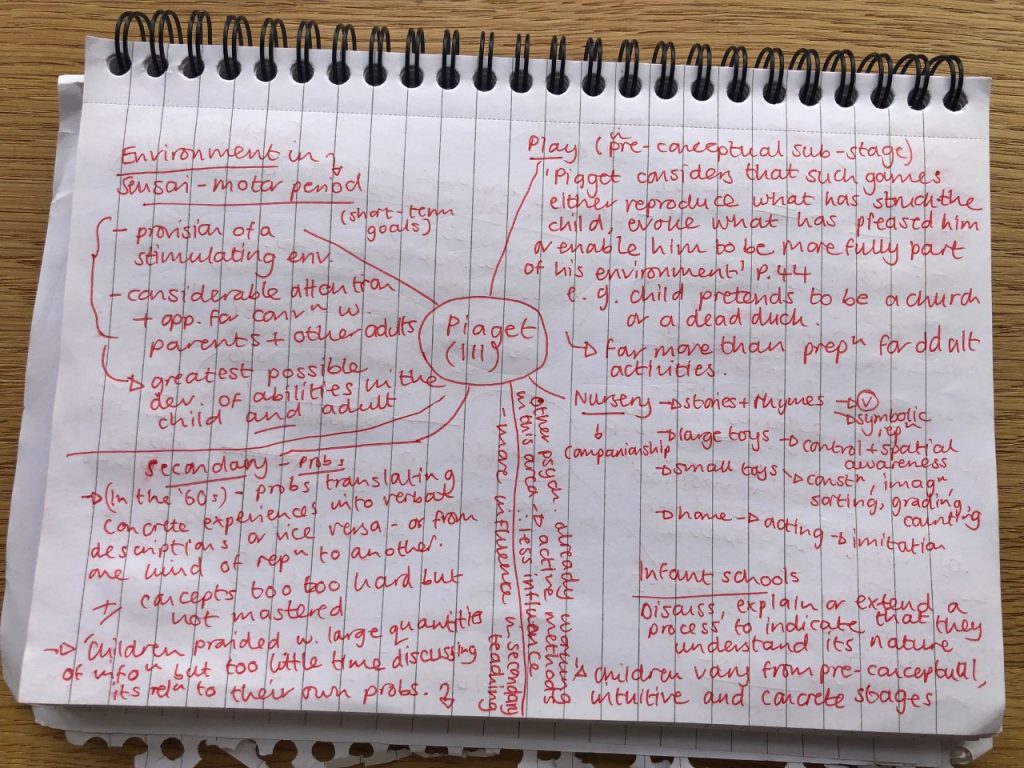 Piaget
(III)
Environment in
sensori-motor period
(short-term
goals)
- provision of a
stimulating env.
- considerable attention
+ opp. for convⁿ w.
parents + other adults
greatest possible
dev. of abilities in the
child and adult
Play (pre-conceptual sub-stage)
'Piaget considers that such games
either reproduce what has struck the
child, evoke what has pleased him
or enable him to be more fully part
of his environment' P.44
e.g. child pretends to be a church
or a dead duck.
Far more than prepⁿ for adult
activities.
Nursery → stories + rhymes → V
→ symbolic
repⁿ
companionship
→ large toys → control + spatial
awareness
→ small toys → constⁿ, imagⁿ
sorting, grading,
counting
→ home → acting → imitation
Infant schools
Discuss, explain or extend a
process to indicate that they
understand its nature
→ children vary from pre-conceptual,
intuitive and concrete stages
other psych. already working
in this area → active methods
∴ less influence
- more influence in secondary
teaching
Secondary - probs
→ (in the '60s) - probs translating
concrete experiences into verbal
descriptions or vice versa - or from
one kind of repⁿ to another.
concepts too too hard but
not mastered
→ 'Children provided w. large quantities
of infoⁿ but too little time discussing
its relⁿ to their own probs.